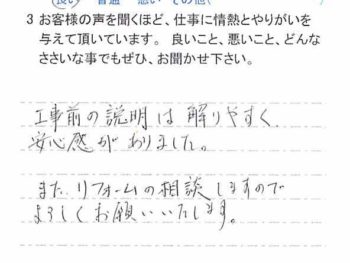 良い 普通 悪い その他(
3 お客様の声を聞くほど、仕事に情熱とやりがいを
与えて頂いています。 良いこと、悪いこと、どんな
ささいな事でもぜひ、お聞かせ下さい。
工事前の説明は解りやすく
安心感がありました。
また リフォームの相談しますので
よろしくお願いいたします。